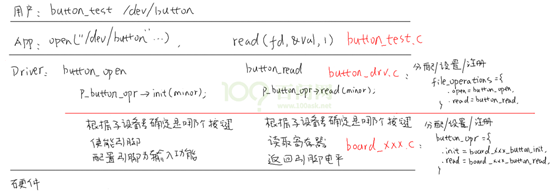 用户: button_test /dev/button
App: open("/dev/button"...), read(fd, &val, 1) button_test.c
Driver: button_open button_read button_drv.c: 分配/设置/注册
p_button_opr→init(minor); p_button_opr→read(minor); file_operations={
.open=button_open,
.read=button_read,
}
根据子设备号确定是哪个按键 根据子设备号确定是哪个按键 分配/设置/注册
使能引脚 读取寄存器 board_xxx.c: button_opr={
配置引脚为输入功能 返回引脚电平 .init=board_xxx_button_init,
.read=board_xxx_button_read,
}
硬件